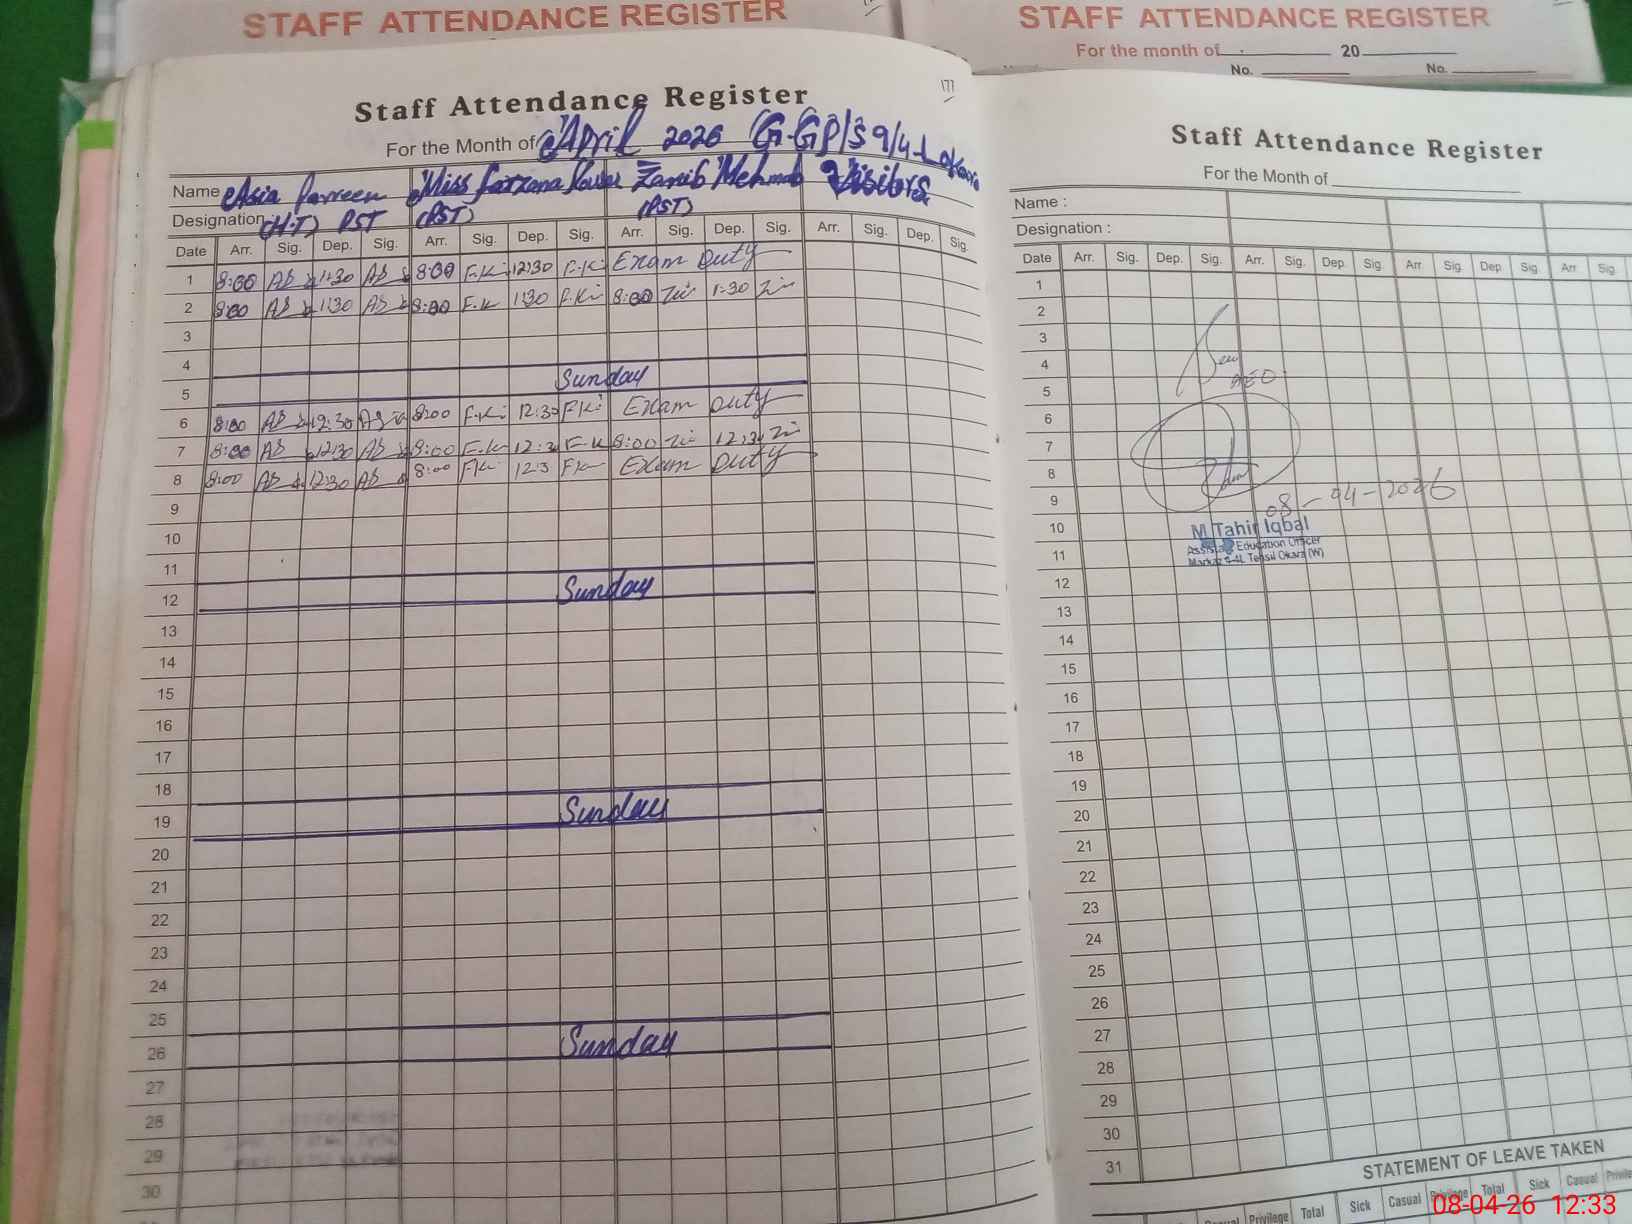 STAFF ATTENDANCE REGISTER
STAFF ATTENDANCE REGISTER
For the month of 20
No. No.
177
Staff Attendance Register
For the Month of April 2026 G.GP/S 9/4-L Okara
Name Asia Parveen Miss Farzana Kausar Zanib Mehmob Visitors
Designation (H.T) PST (PST) (PST)
Date Arr. Sig. Dep. Sig. Arr. Sig. Dep. Sig. Arr. Sig. Dep. Sig. Arr. Sig. Dep. Sig.
1 8:00 1:30 8:00 F.K 12:30 F.K Exam Duty
2 8:00 1:30 8:00 F.K 1:30 F.K 8:00 1:30
3
4
5 Sunday
6 8:00 12:30 8:00 F.K 12:30 F.K Exam Duty
7 8:00 12:30 8:00 F.K 12:3 F.K 8:00 12:30
8 8:00 12:30 8:00 FK 12:3 FK Exam Duty
9
10
11
12 Sunday
13
14
15
16
17
18
19 Sunday
20
21
22
23
24
25
26 Sunday
27
28
29
30
Staff Attendance Register
For the Month of
Name :
Designation :
Date Arr. Sig. Dep. Sig. Arr. Sig. Dep. Sig. Arr Sig. Dep Sig. Arr Sig.
1
2
3
4
5 AEO
6
7
8
9 08-04-2026
10 M Tahir Iqbal
11 Assistant Education Officer
Markaz 5-4L Tehsil Okara (W)
12
13
14
15
16
17
18
19
20
21
22
23
24
25
26
27
28
29
30
31
STATEMENT OF LEAVE TAKEN
Privilege Total Sick Casual Privilege Total Sick Casual
08-04-26 12:33